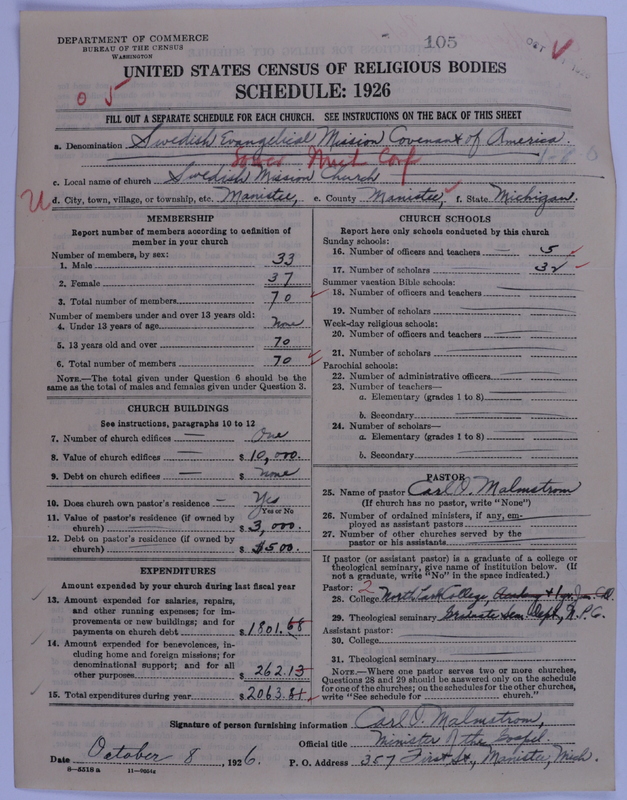 DEPARTMENT OF COMMERCE
BUREAU OF THE CENSUS
WASHINGTON
105
OCT
UNITED STATES CENSUS OF RELIGIOUS BODIES
SCHEDULE: 1926
0 5
FILL OUT A SEPARATE SCHEDULE FOR EACH CHURCH. SEE INSTRUCTIONS ON THE BACK OF THIS SHEET
a. Denomination Swedish Evangelical Mission Covenant of America.
1-8-0
c. Local name of church Swedish Mission Church
d. City, town, village, or township, etc. Manistee, e. County Manistee, f. State Michigan.
MEMBERSHIP
Report number of members according to definition of member in your church
Number of members, by sex:
1. Male 33
2. Female 37
3. Total number of members 70
Number of members under and over 13 years old:
4. Under 13 years of age None
5. 13 years old and over 70
6. Total number of members 70
NOTE.—The total given under Question 6 should be the same as the total of males and females given under Question 3.
CHURCH BUILDINGS
See instructions, paragraphs 10 to 12
7. Number of church edifices — One
8. Value of church edifices — $ 10,000.
9. Debt on church edifices — $ None
10. Does church own pastor's residence — Yes
(Yes or No
11. Value of pastor's residence (if owned by church) $ 3,000.
12. Debt on pastor's residence (if owned by church) $ $500.
EXPENDITURES
Amount expended by your church during last fiscal year
13. Amount expended for salaries, repairs, and other running expenses; for improvements or new buildings; and for payments on church debt $ 1801.68
14. Amount expended for benevolences, including home and foreign missions; for denominational support; and for all other purposes $ 262.13
15. Total expenditures during year $ 2063.81
CHURCH SCHOOLS
Report here only schools conducted by this church
Sunday schools:
16. Number of officers and teachers 5
17. Number of scholars 32
Summer vacation Bible schools:
18. Number of officers and teachers
19. Number of scholars
Week-day religious schools:
20. Number of officers and teachers
21. Number of scholars
Parochial schools:
22. Number of administrative officers
23. Number of teachers—
a. Elementary (grades 1 to 8)
b. Secondary
24. Number of scholars—
a. Elementary (grades 1 to 8)
b. Secondary
PASTOR
25. Name of pastor Carl O. Malmstrom
(If church has no pastor, write "None")
26. Number of ordained ministers, if any, employed as assistant pastors
27. Number of other churches served by the pastor or his assistants
If pastor (or assistant pastor) is a graduate of a college or theological seminary, give name of institution below. (If not a graduate, write "No" in the space indicated.)
Pastor: 2
28. College North Park College, Academy & 1 yr. Jun. Col.
29. Theological seminary Graduate Sem. Dept., N.P.C.
Assistant pastor:
30. College
31. Theological seminary
NOTE.—Where one pastor serves two or more churches, Questions 28 and 29 should be answered only on the schedule for one of the churches; on the schedules for the other churches, write "See schedule for church."
Signature of person furnishing information Carl O. Malmstrom,
Official title Minister of the Gospel.
Date October 8, 1926. P. O. Address 357 First St., Manistee, Mich.
8—5518 a 11—9554z